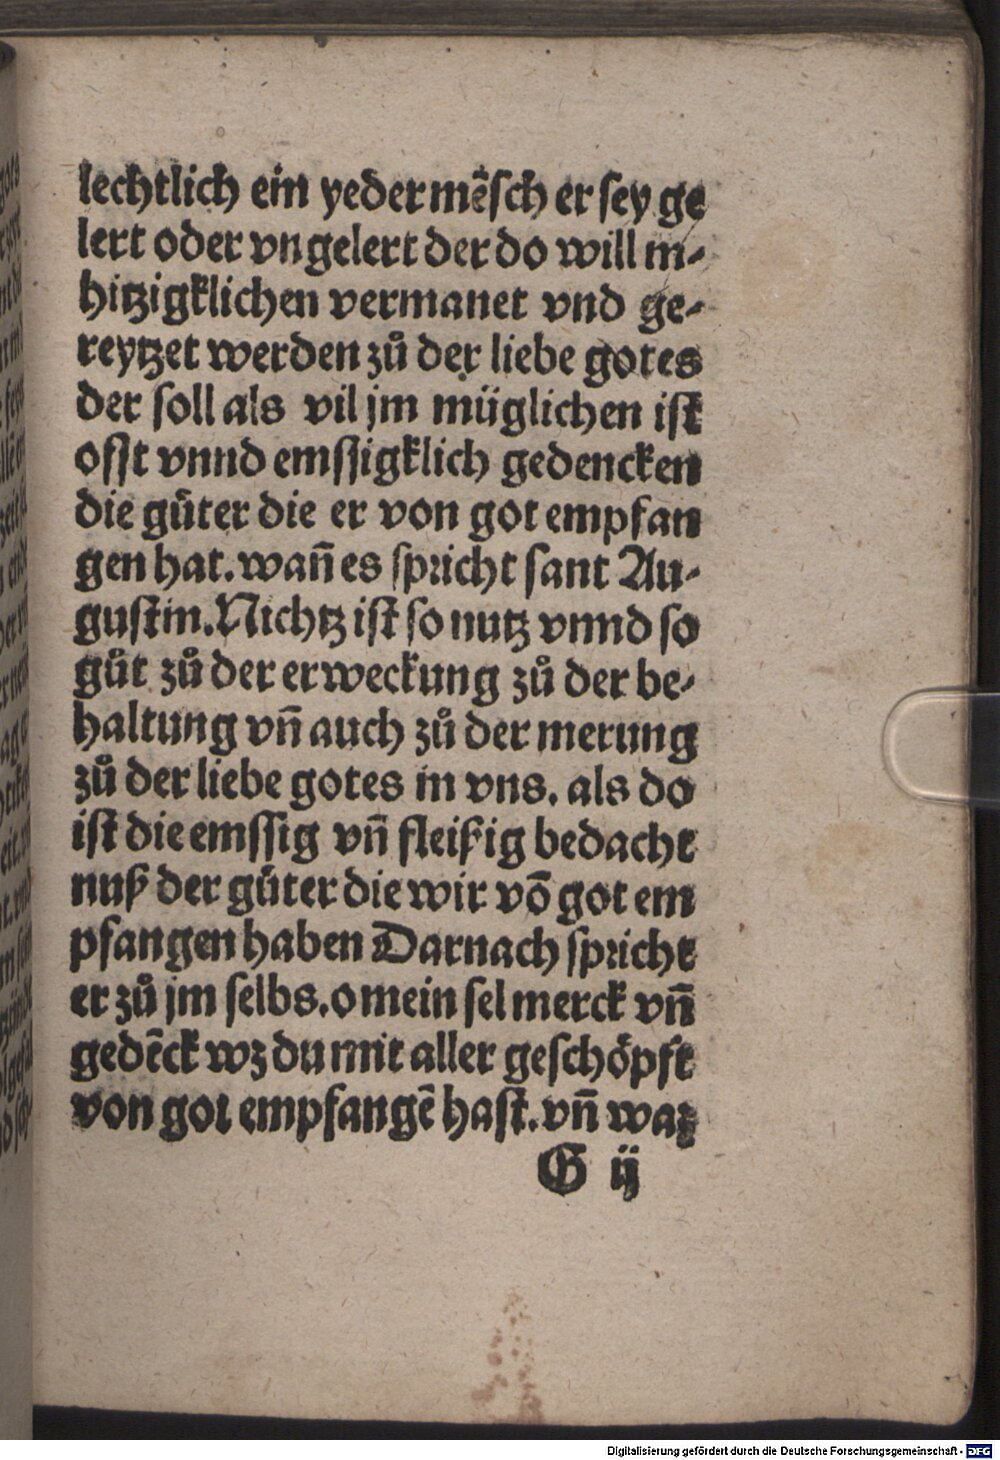 lechtlich ein yeder mēsch er sey ge
lert oder vngelert der do will in-
hitzigklichen vermanet vnd ge-
reytzet werden zů der liebe gotes
der soll als vil jm müglichen ist
offt vnnd emssigklich gedencken
die gůter die er von got empfan
gen hat. wañ es spricht sant Au-
gustin. Nichtz ist so nutz vnnd so
gůt zů der erweckung zů der be-
haltung vñ auch zů der merung
zů der liebe gotes in vns. als do
ist die emssig vñ fleißig bedacht
nuß der gůter die wir vō got em
pfangen haben Darnach spricht
er zů jm selbs. o mein sel merck vñ
gedēck wz du mit aller geschöpft
von got empfangē hast. vñ waz
G ij
Digitalisierung gefördert durch die Deutsche Forschungsgemeinschaft - DFG